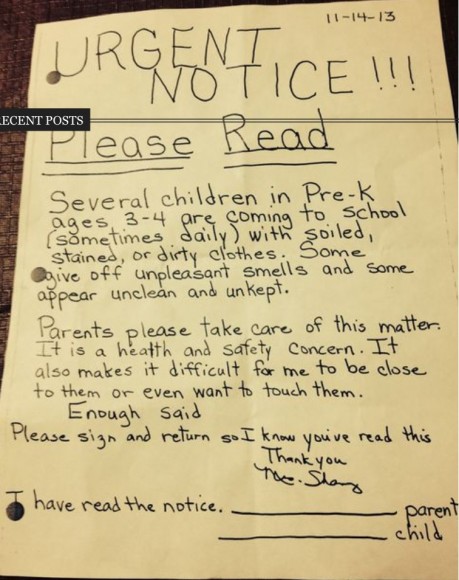 11-14-13
URGENT
NOTICE!!!
RECENT POSTS
Please Read
Several children in Pre-K
ages 3-4 are coming to school
(sometimes daily) with soiled,
stained, or dirty clothes. Some
give off unpleasant smells and some
appear unclean and unkept.
Parents please take care of this matter.
It is a health and safety concern. It
also makes it difficult for me to be close
to them or even want to touch them.
Enough said
Please sign and return so I know you've read this
Thank you
I have read the notice. parent
child